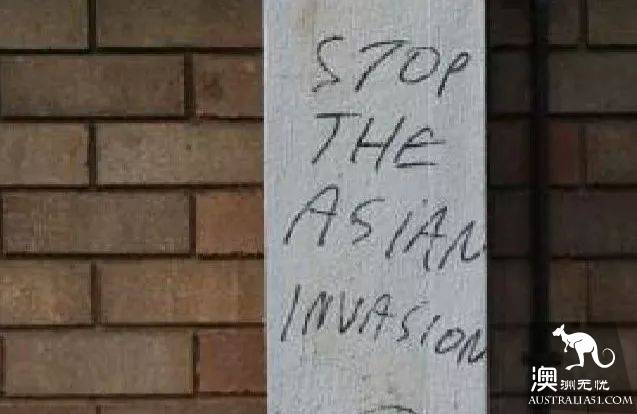 STOP
THE
ASIAN
INVASION
澳洲无忧
AUSTRALIA51.COM